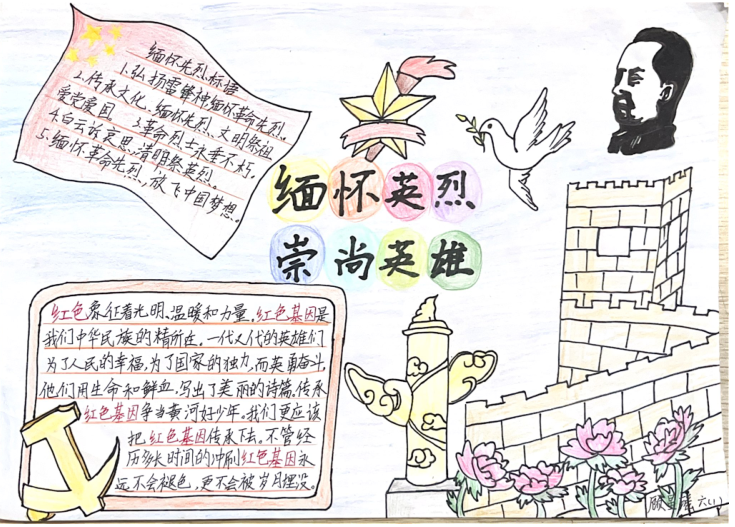 缅怀先烈标语
1.弘扬雷锋神缅怀革命先烈.
2.传承文化.缅怀先烈.文明祭祖
爱党爱国. 3.革命烈士永垂不朽,
4.白云诉哀思,清明祭英烈。
5.缅怀革命先烈,放飞中国梦想。
缅怀英烈
崇尚英雄
红色象征着光明、温暖和力量,红色基因是
我们中华民族的精所在,一代又代的英雄们
为了人民的幸福,为了国家的独力,而英勇奋斗,
他们用生命和鲜血,写出了美丽的诗篇,传承
红色基因争当黄河好少年。我们更应该
把红色基因传承下去。不管经
历多长时间的冲刷红色基因永
远不会褪色,更不会被岁月埋没。
六(1)